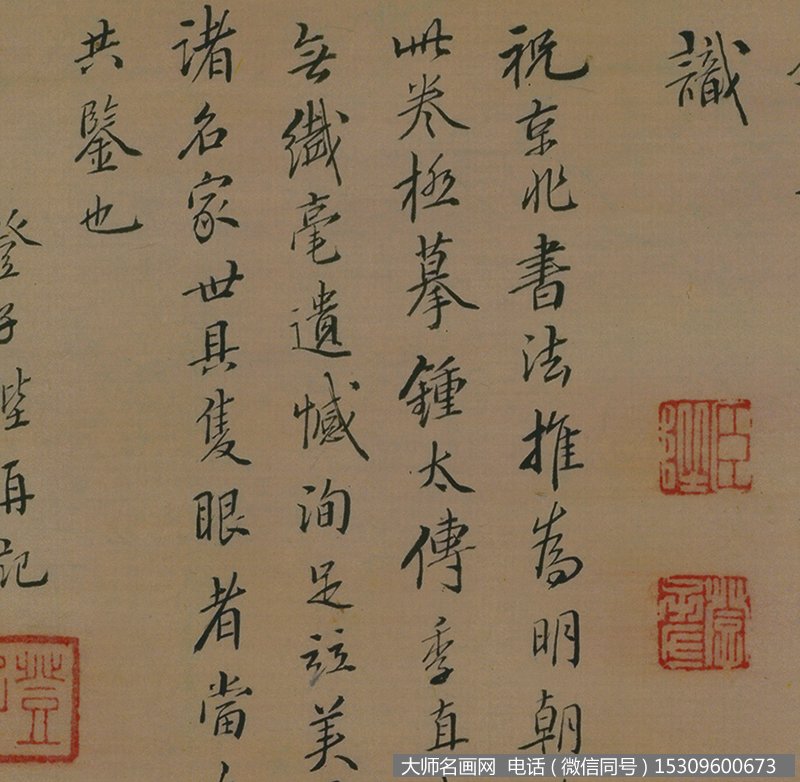 識
祝京兆書法推為明朝
此卷極摹鍾太傳季直
無纖毫遺憾洵足竝美
諸名家世具隻眼者當
共鑒也
登子陛再記
臣
登
大师名画网 电话（微信同号）15309600673